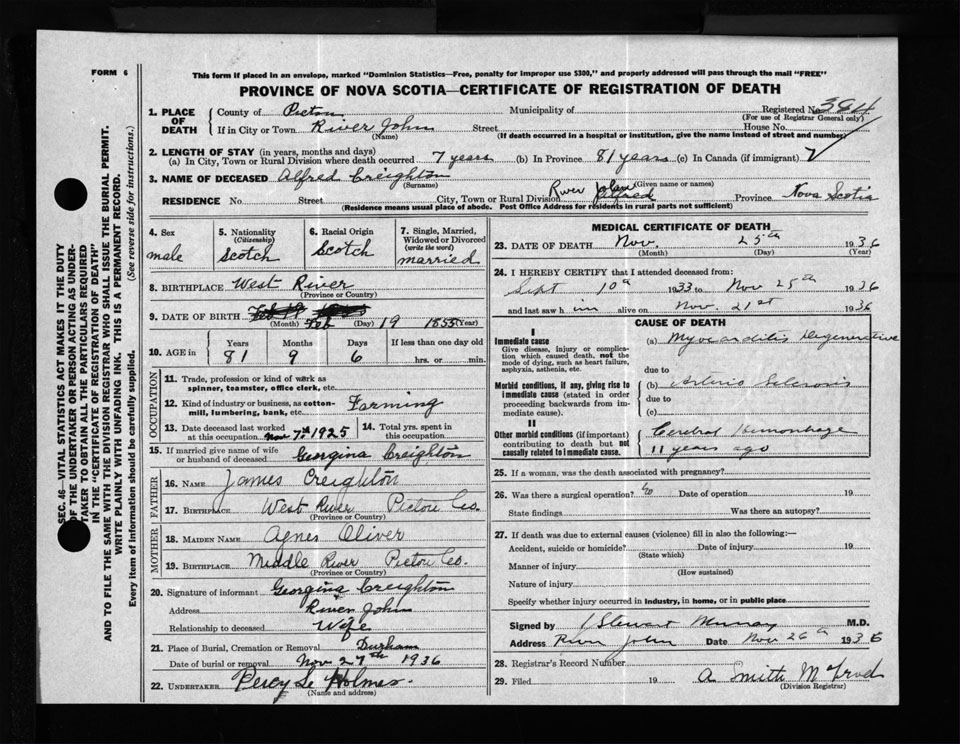 FORM 6
This form if placed in an envelope, marked "Dominion Statistics—Free, penalty for improper use $300," and properly addressed will pass through the mail "FREE"
PROVINCE OF NOVA SCOTIA—CERTIFICATE OF REGISTRATION OF DEATH
1. PLACE OF DEATH
County of Pictou Municipality of Registered No. 394
(For use of Registrar General only)
If in City or Town River John Street House No.
(Name) (If death occurred in a hospital or institution, give the name instead of street and number)
2. LENGTH OF STAY (in years, months and days)
(a) In City, Town or Rural Division where death occurred 7 years (b) In Province 81 years (c) In Canada (if immigrant)
3. NAME OF DECEASED Alfred Creighton
(Surname) (Given name or names)
RESIDENCE No. Street City, Town or Rural Division River John Province Nova Scotia
(Residence means usual place of abode. Post Office Address for residents in rural parts not sufficient)
4. Sex male
5. Nationality (Citizenship) Scotch
6. Racial Origin Scotch
7. Single, Married, Widowed or Divorced (write the word) married
8. BIRTHPLACE West River
(Province or Country)
9. DATE OF BIRTH Feb 19 1855
(Month) (Day) (Year)
10. AGE in Years 81 Months 9 Days 6 If less than one day old hrs. or min.
OCCUPATION
11. Trade, profession or kind of work as spinner, teamster, office clerk, etc.
12. Kind of industry or business, as cotton-mill, lumbering, bank, etc. Farming
13. Date deceased last worked at this occupation Nov 7th 1925
14. Total yrs. spent in this occupation
15. If married give name of wife or husband of deceased Georgina Creighton
FATHER
16. NAME James Creighton
17. BIRTHPLACE West River Pictou Co.
(Province or Country)
MOTHER
18. MAIDEN NAME Agnes Oliver
19. BIRTHPLACE Middle River Pictou Co.
(Province or Country)
20. Signature of informant Georgina Creighton
Address River John
Relationship to deceased Wife
21. Place of Burial, Cremation or Removal Durham
Date of burial or removal Nov 27th 1936
22. UNDERTAKER Percy L Holmes
(Name and address)
MEDICAL CERTIFICATE OF DEATH
23. DATE OF DEATH Nov. 25th 1936
(Month) (Day) (Year)
24. I HEREBY CERTIFY that I attended deceased from:
Sept 10th 1933 to Nov 25th 1936
and last saw h im alive on Nov. 21st 1936
CAUSE OF DEATH
I
Immediate cause
Give disease, injury or complication which caused death, not the mode of dying, such as heart failure, asphyxia, asthenia, etc.
(a) Myocarditis Degenerative
due to
Morbid conditions, if any, giving rise to immediate cause (stated in order proceeding backwards from immediate cause).
(b) Arterio Sclerosis
due to
(c)
II
Other morbid conditions (if important) contributing to death but not causally related to immediate cause.
Cerebral Hemorrhage
11 years ago
25. If a woman, was the death associated with pregnancy?
26. Was there a surgical operation? Date of operation 19
State findings Was there an autopsy?
27. If death was due to external causes (violence) fill in also the following:—
Accident, suicide or homicide? Date of injury 19
(State which)
Manner of injury
(How sustained)
Nature of injury
Specify whether injury occurred in industry, in home, or in public place
Signed by Stewart Murray M.D.
Address River John Date Nov 26th 1936
28. Registrar's Record Number
29. Filed 19 A Smith
(Division Registrar)
SEC. 46—VITAL STATISTICS ACT MAKES IT THE DUTY
OF THE UNDERTAKER OR PERSON ACTING AS UNDER-
TAKER TO OBTAIN ALL THE PARTICULARS REQUIRED
IN THE "CERTIFICATE OF REGISTRATION OF DEATH"
AND TO FILE THE SAME WITH THE DIVISION REGISTRAR WHO SHALL ISSUE THE BURIAL PERMIT.
WRITE PLAINLY WITH UNFADING INK. THIS IS A PERMANENT RECORD.
Every item of information should be carefully supplied. (See reverse side for instructions.)